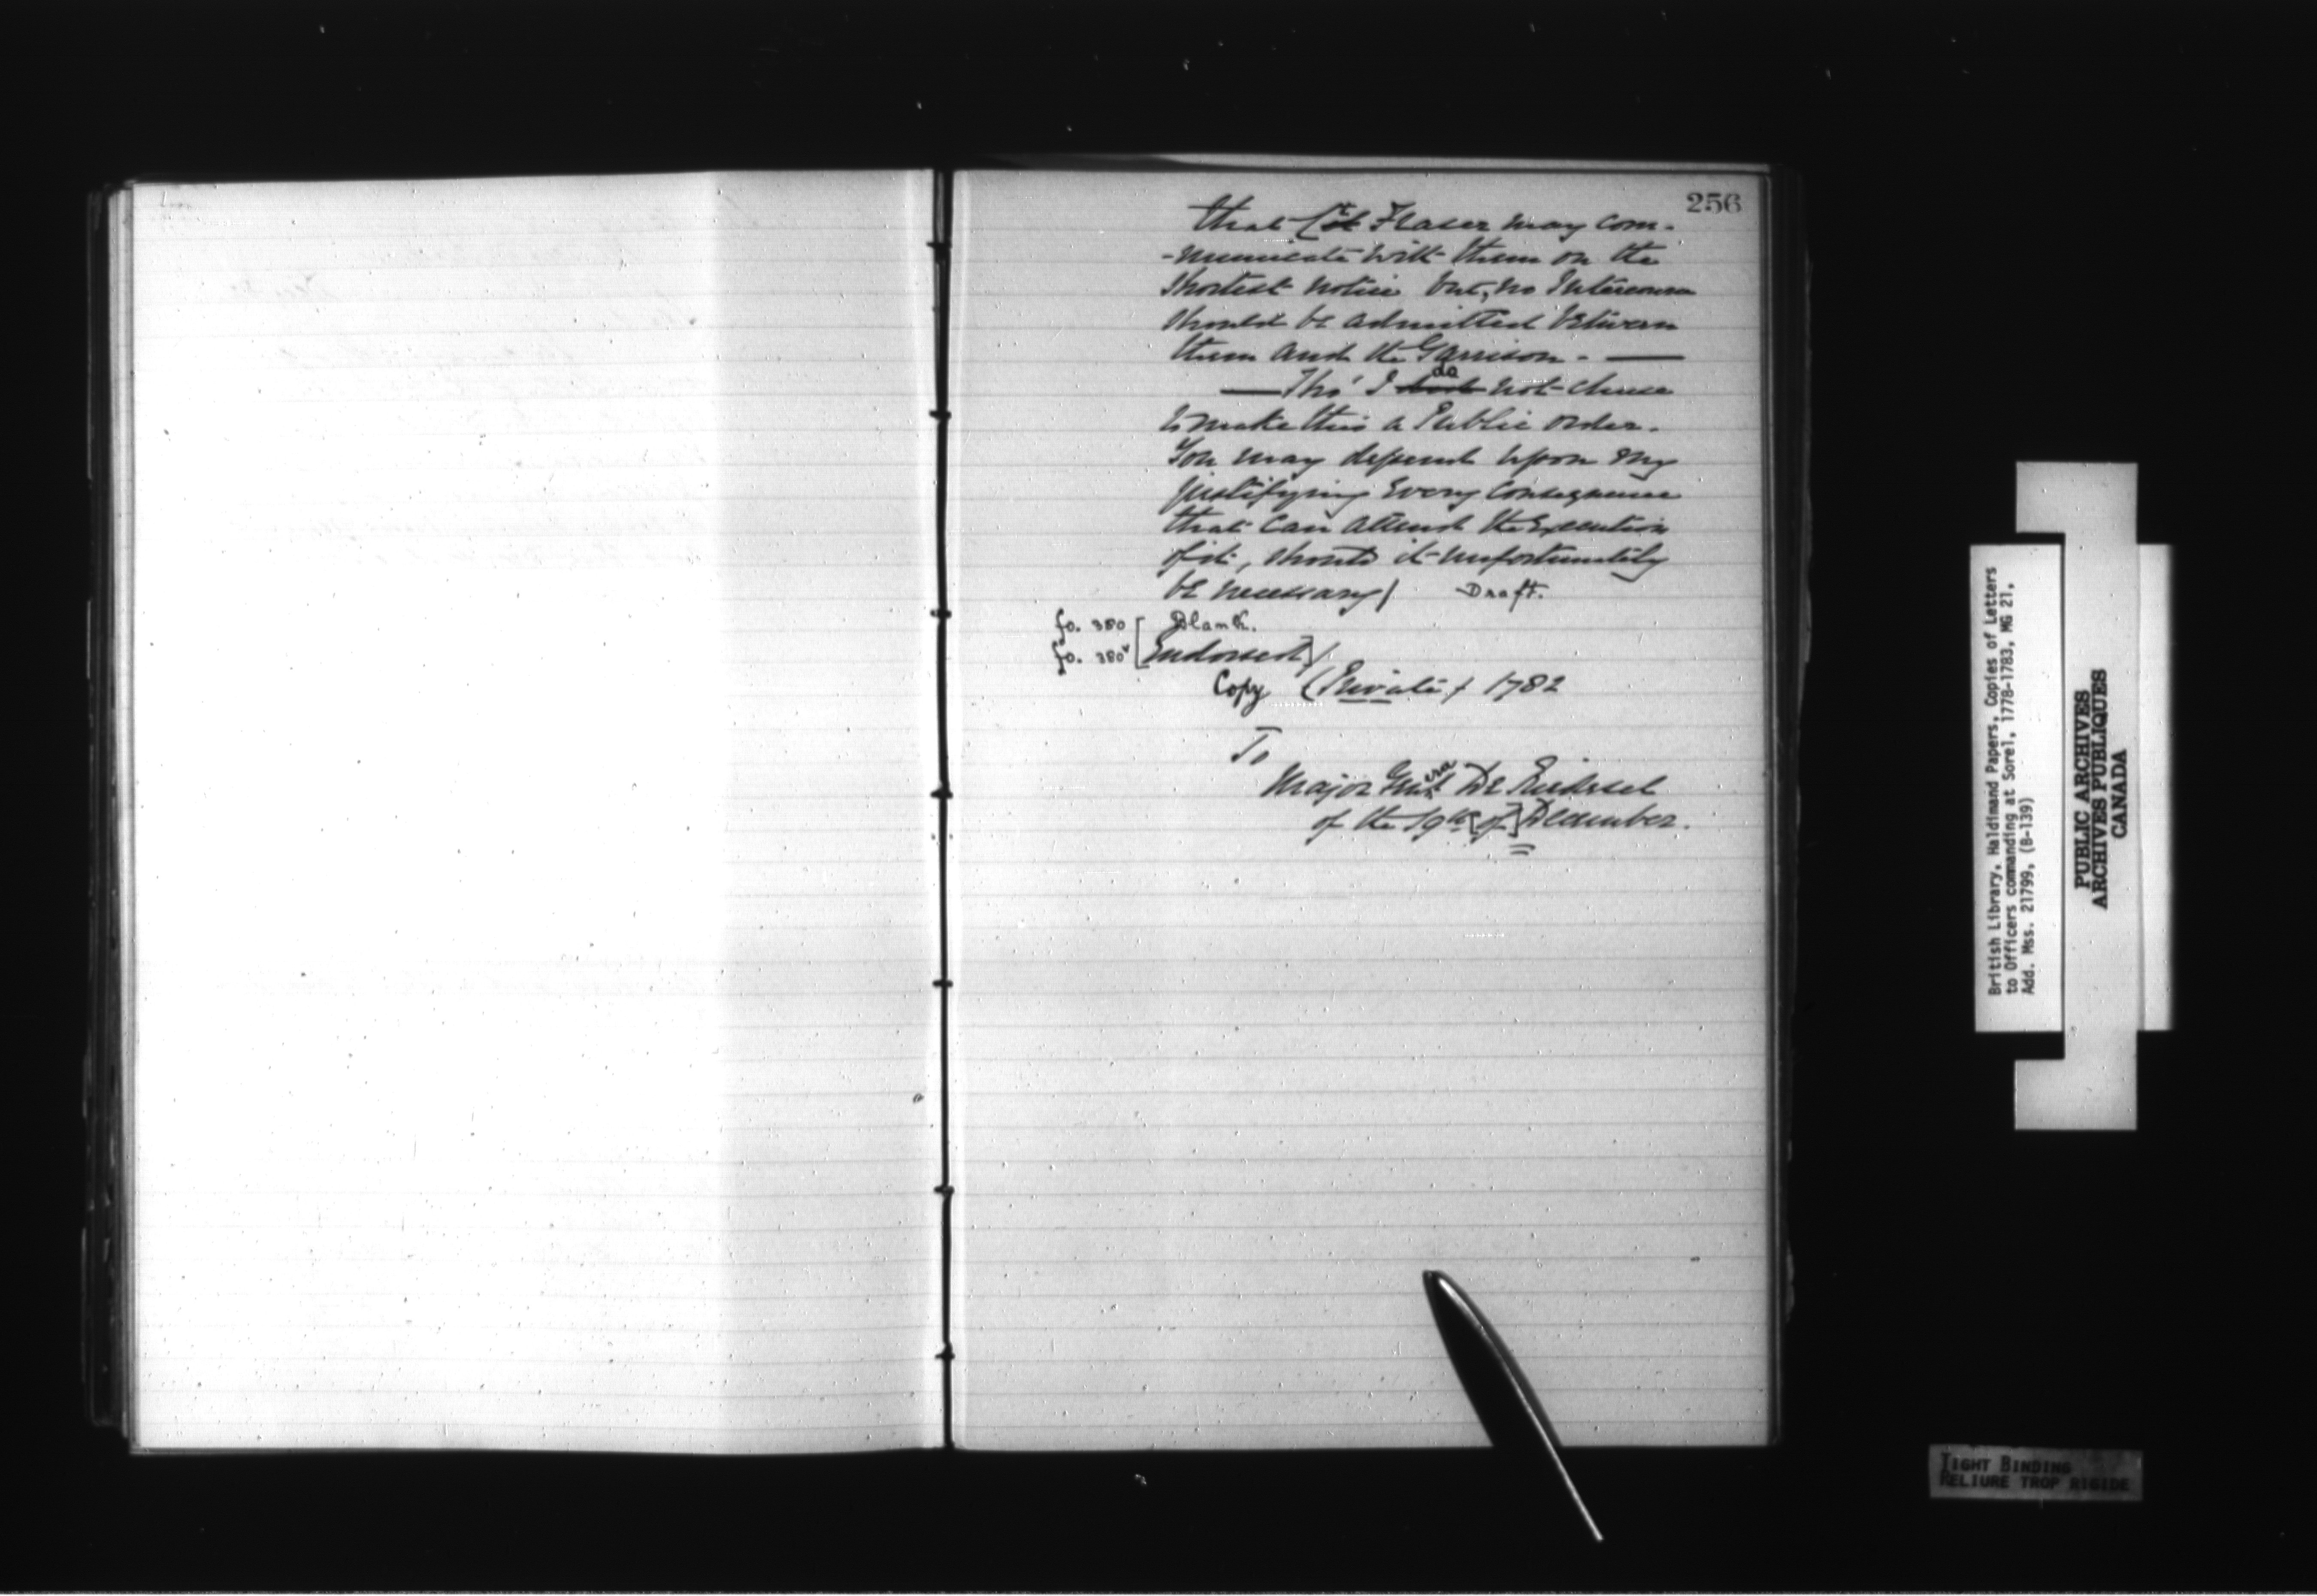 256
that Cpt Fraser may com-
-municate with them on the
shortest notice but, no Intercourse
should be admitted between
them and the Garrison. —
— Tho' I do not chuse
to make this a Public order.
You may depend upon my
justifying every Consequence
that can attend the Execution
of it, should it unfortunately
be necessary/ Draft.
fo. 380 [ Blank.
fo. 380v [Endorsed]/
Copy (Private) 1782
To
Major General De Riedesel
of the 19th [of] December.
British Library, Haldimand Papers, Copies of Letters
to Officers commanding at Sorel, 1778-1783, MG 21,
Add. Mss. 21799, (B-139)
PUBLIC ARCHIVES
ARCHIVES PUBLIQUES
CANADA
TIGHT BINDING
RELIURE TROP RIGIDE